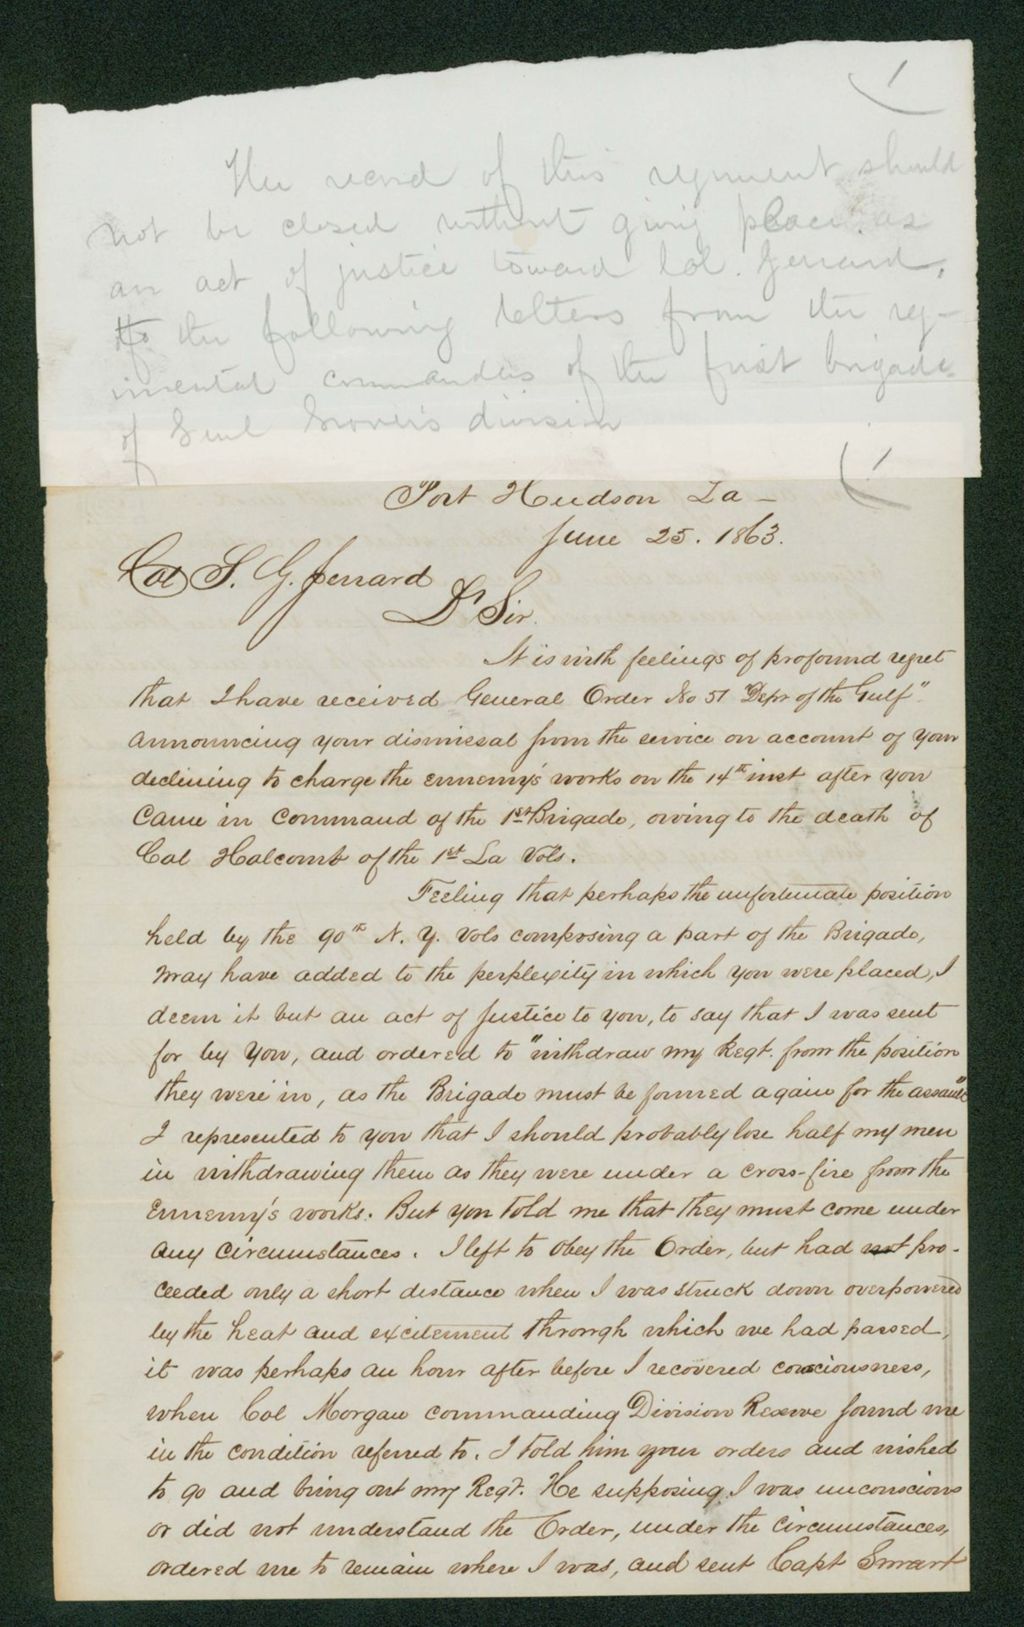 1
The record of this regiment should
not be closed without giving place, as
an act of justice toward Col. Jerrard,
to the following letters from the reg-
imental commanders of the first brigade
of Genl Grover's division
1
Port Hudson La -
June 25. 1863.
Col S. G. Jerrard
Dr Sir.
It is with feelings of profound regret
that I have received General Order No 51 "Depr of the Gulf"
announcing your dismissal from the service on account of your
declining to charge the ennemy's works on the 14th inst after you
came in command of the 1st Brigade, owing to the death of
Col Holcomb of the 1st La Vols.
Feeling that perhaps the unfortunate position
held by the 90th N. Y. Vols composing a part of the Brigade,
may have added to the perplexity in which you were placed, I
deem it but an act of Justice to you, to say that I was sent
for by you, and ordered to "withdraw my Regt. from the position
they were in, as the Brigade must be formed again for the assault"
I represented to you that I should probably lose half my men
in withdrawing them as they were under a cross-fire from the
Ennemy's works. But you told me that they must come under
any circumstances. I left to obey the Order, but had not pro-
ceeded only a short distance when I was struck down overpowered
by the heat and excitement through which we had passed,
it was perhaps an hour after before I recovered consciousness,
when Col Morgan commanding Division Reserve found me
in the condition referred to. I told him your orders and wished
to go and bring out my Regt. He supposing I was unconscious
or did not understand the Order, under the circumstances,
ordered me to remain where I was, and sent Capt Smart